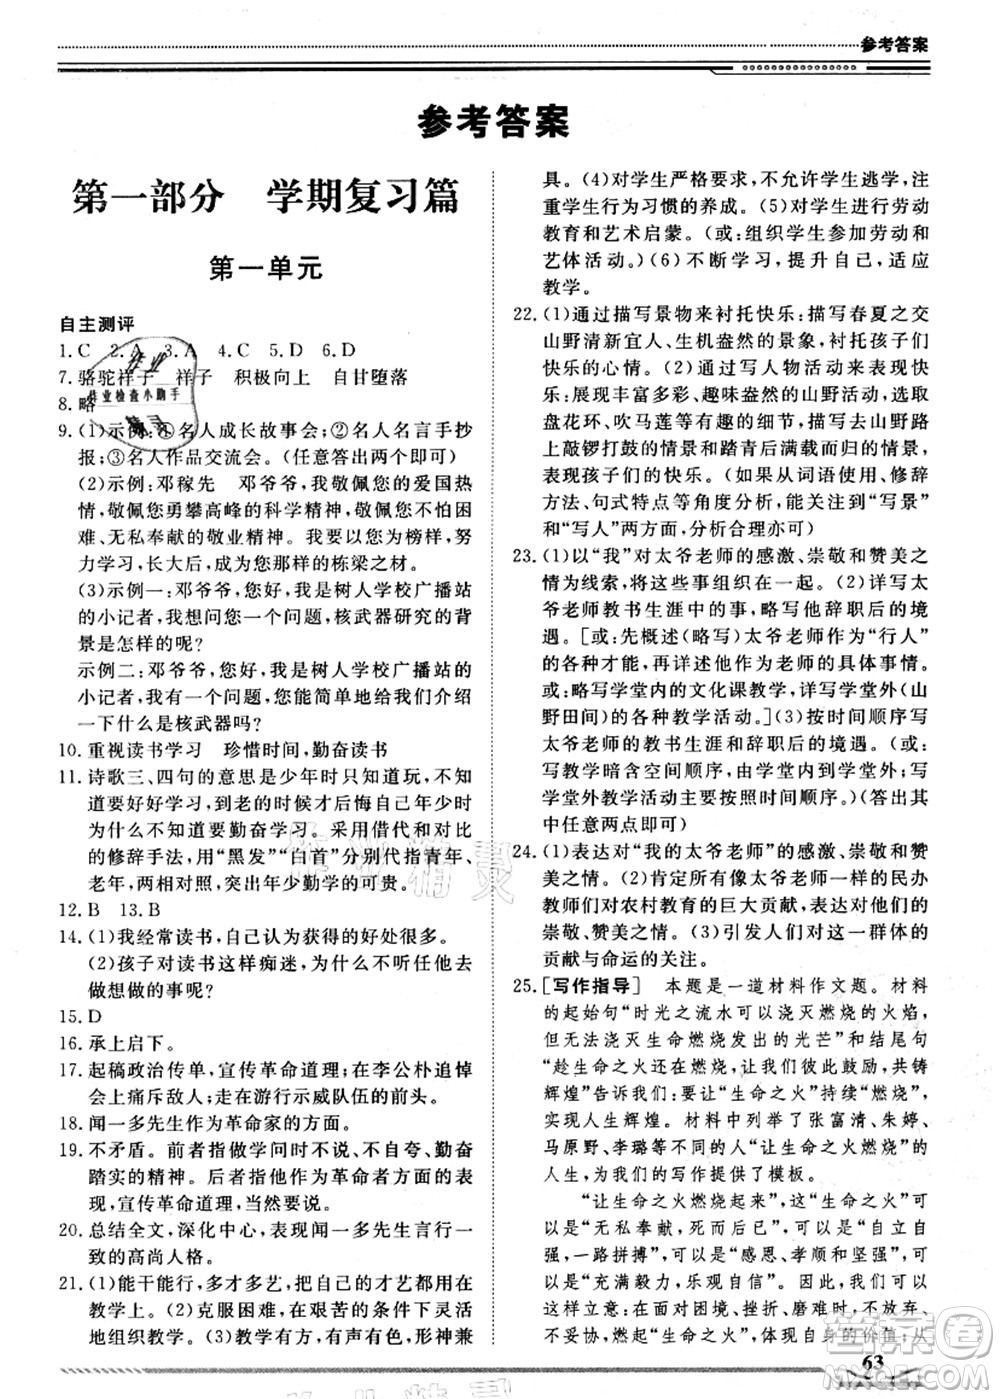 参考答案
参考答案
第一部分 学期复习篇
第一单元
自主测评
1.C 2.A 3.A 4.C 5.D 6.D
7.骆驼祥子 祥子 积极向上 自甘堕落
8.略
9.(1)示例:①名人成长故事会;②名人名言手抄
报;③名人作品交流会。(任意答出两个即可)
(2)示例:邓稼先 邓爷爷,我敬佩您的爱国热
情,敬佩您勇攀高峰的科学精神,敬佩您不怕困
难、无私奉献的敬业精神。我要以您为榜样,好
好学习,长大后,成为祖国的栋梁之材。
(3)示例一:邓爷爷,您好,我是树人学校广播站
的小记者,我想问您一个问题,核武器研究的背
景是怎样的呢?
示例二:邓爷爷,您好,我是树人学校广播站的
小记者,我有一个问题,您能简单地给我们介绍
一下什么是核武器吗?
10.重视读书学习 珍惜时间,勤奋读书
11.诗歌三、四句的意思是少年时只知道玩,不知
道要好好学习,到老的时候才后悔自己年少时
为什么不知道要勤奋学习。采用借代和对比
的修辞手法,用“黑发”“白首”分别代指青年、
老年,两相对照,突出年少勤学的可贵。
12.B 13.B
14.(1)我经常读书,自己认为获得的好处很多。
(2)孩子对读书这样痴迷,为什么不听任他去
做想做的事呢?
15.D
16.承上启下。
17.起稿政治传单,宣传革命道理;在李公朴追悼
会上痛斥敌人;走在游行示威队伍的前头。
18.闻一多先生作为革命家的方面。
19.不矛盾。前者指做学问时不说、不自夸、勤奋
踏实的精神。后者指他作为革命者的有勇有
谋,宣传革命道理,当然要说。
20.总结全文,深化中心,表现闻一多先生言行一
致的高尚人格。
21.(1)能干能行,多才多艺,把自己的才艺都用在
教学上。(2)克服困难,在艰苦的条件下灵活
地组织教学。(3)教学有方,有声有色,形神兼
具。(4)对学生严格要求,不允许学生逃学,注
重学生行为习惯的养成。(5)对学生进行劳动
教育和艺术启蒙。(或:组织学生参加劳动和
艺体活动。)(6)不断学习,提升自己,适应
教学。
22.(1)通过描写景物来衬托快乐:描写春夏之交
山野清新宜人、生机盎然的景象,衬托孩子们
快乐的心情。(2)通过描写人物活动来表现快
乐:展现丰富多彩、趣味盎然的山野活动,如识
盘花环、吹马莲等有趣的细节,描写山野路
上敲锣打鼓的情景和踏青后满载而归的情景,
表现孩子们的快乐。(如果从词语使用、修辞
方法、句式特点等角度分析,能关注到“写景”
和“写人”两方面,分析合理亦可)
23.(1)以“我”对太爷老师的感激、崇敬和赞美之
情为线索,将这些事组织在一起。(2)详写太
爷老师教书生涯中的事,略写他辞职后的境
遇。[或:先概述(略写)太爷老师作为“行人”
的各种才能,再详写太爷老师的具体事情。
或:略写学堂内的文化课教学,详写学堂外(山
野田间)的各种教学活动。](3)按时间顺序写
太爷老师的教书生涯和辞职后的境遇。(或:
写教学暗含空间顺序,由学堂内到学堂外;写
学堂外教学活动主要按照时间顺序。)(答出其
中任意两点即可)
24.(1)表达对“我的太爷老师”的感激、崇敬和赞
美之情。(2)肯定所有像太爷老师一样的民办
教师们对农村教育的巨大贡献,表达对他们的
崇敬、赞美之情。(3)引发人们对这一群体的
贡献与命运的关注。
25.[写作指导] 本题是一道材料作文题。材料
的起始句“时光之流水可以浇灭燃烧的火焰,
但无法浇灭生命燃烧发出的光芒”和结尾句
“趁生命之火可以燃烧,让我们点燃它,共铸
辉煌”告诉我们,要让“生命之火”持续“燃烧”,
实现人生辉煌。材料中列举了张富清、朱婷、
马原野、李璐等不同的人“让生命之火燃烧”的
人生,为我们的写作提供了模板。
“让生命之火燃烧起来”,这“生命之火”可
以是“无私奉献,死而后已”,可以是“自立自强,
一路拼搏”,可以是“感恩、孝顺和坚强”,可以是
“充满毅力,乐观自信”。因此,本次作文我们可
以这样立意:面对困境、挫折、磨难,不放弃、不
惧怕,燃起“生命之火”,体现自身的价值;从
63
作业精灵